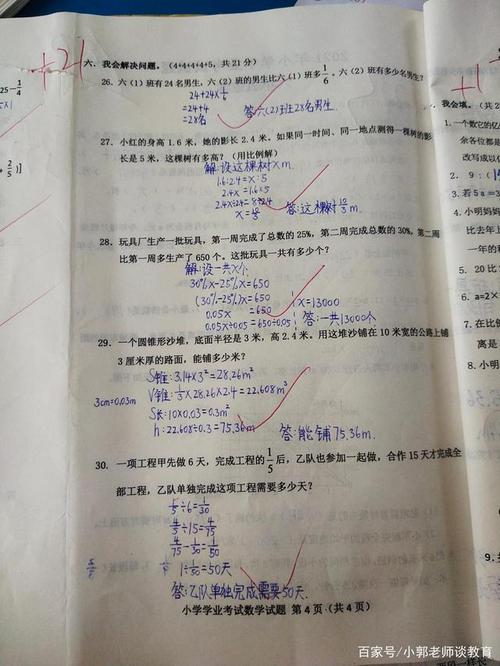 +21
六、我会解决问题。(4+4+4+4+5，共 21 分)
26. 六（1）班有 24 名男生，六（2）班的男生比六（1）班多1/6。六（2）班有多少名男生？
24+24×1/6
=24+4
=28名
答:六(2)班28名男生
27. 小红的身高 1.6 米，她的影长 2.4 米。如果同一时间、同一地点测得一棵树的影
长是 5 米，这棵树有多高？（用比例解）
解:设这棵树xm.
1.6:2.4=x:5
2.4x=1.6×5
2.4x÷2.4=8÷2.4
x=10/3
答:这棵树10/3m.
28. 玩具厂生产一批玩具，第一周完成了总数的 25%，第二周完成总数的 30%，第二周
比第一周多生产了 650 个。这批玩具一共有多少个？
解:设一共x个.
30%x-25%x=650
(30%-25%)x=650
0.05x=650
0.05x÷0.05=650÷0.05
x=13000
答:一共13000个
29. 一个圆锥形沙堆，底面半径是 3 米，高 2.4 米。用这堆沙铺在 10 米宽的公路上铺
3 厘米厚的路面，能铺多少米？
S锥:3.14×3²=28.26m²
3cm=0.03m
V锥:1/3×28.26×2.4=22.608m³
S长:10×0.03=0.3m²
h:22.608÷0.3=75.36m
答:能铺75.36m.
30. 一项工程甲先做 6 天，完成工程的1/5后，乙队也参加一起做，合作 15 天才完成全
部工程，乙队单独完成这项工程需要多少天？
1/5÷6=1/30
4/5÷15=4/75
4/75-1/30=1/50
1÷1/50=50天
答:乙队单独完成需要50天.
小学学业考试数学试题 第 4 页（共 4 页）
25-1/4
+1
我会填。
1. 一个数它的亿
余各位都是
改写成以
2. 9：(
3. 若 5a=3
4. 小明妈妈
比去年上
一年的
5. 20 比
6. a=2×
是
离是
8.
9.
百家号/小郭老师谈教育